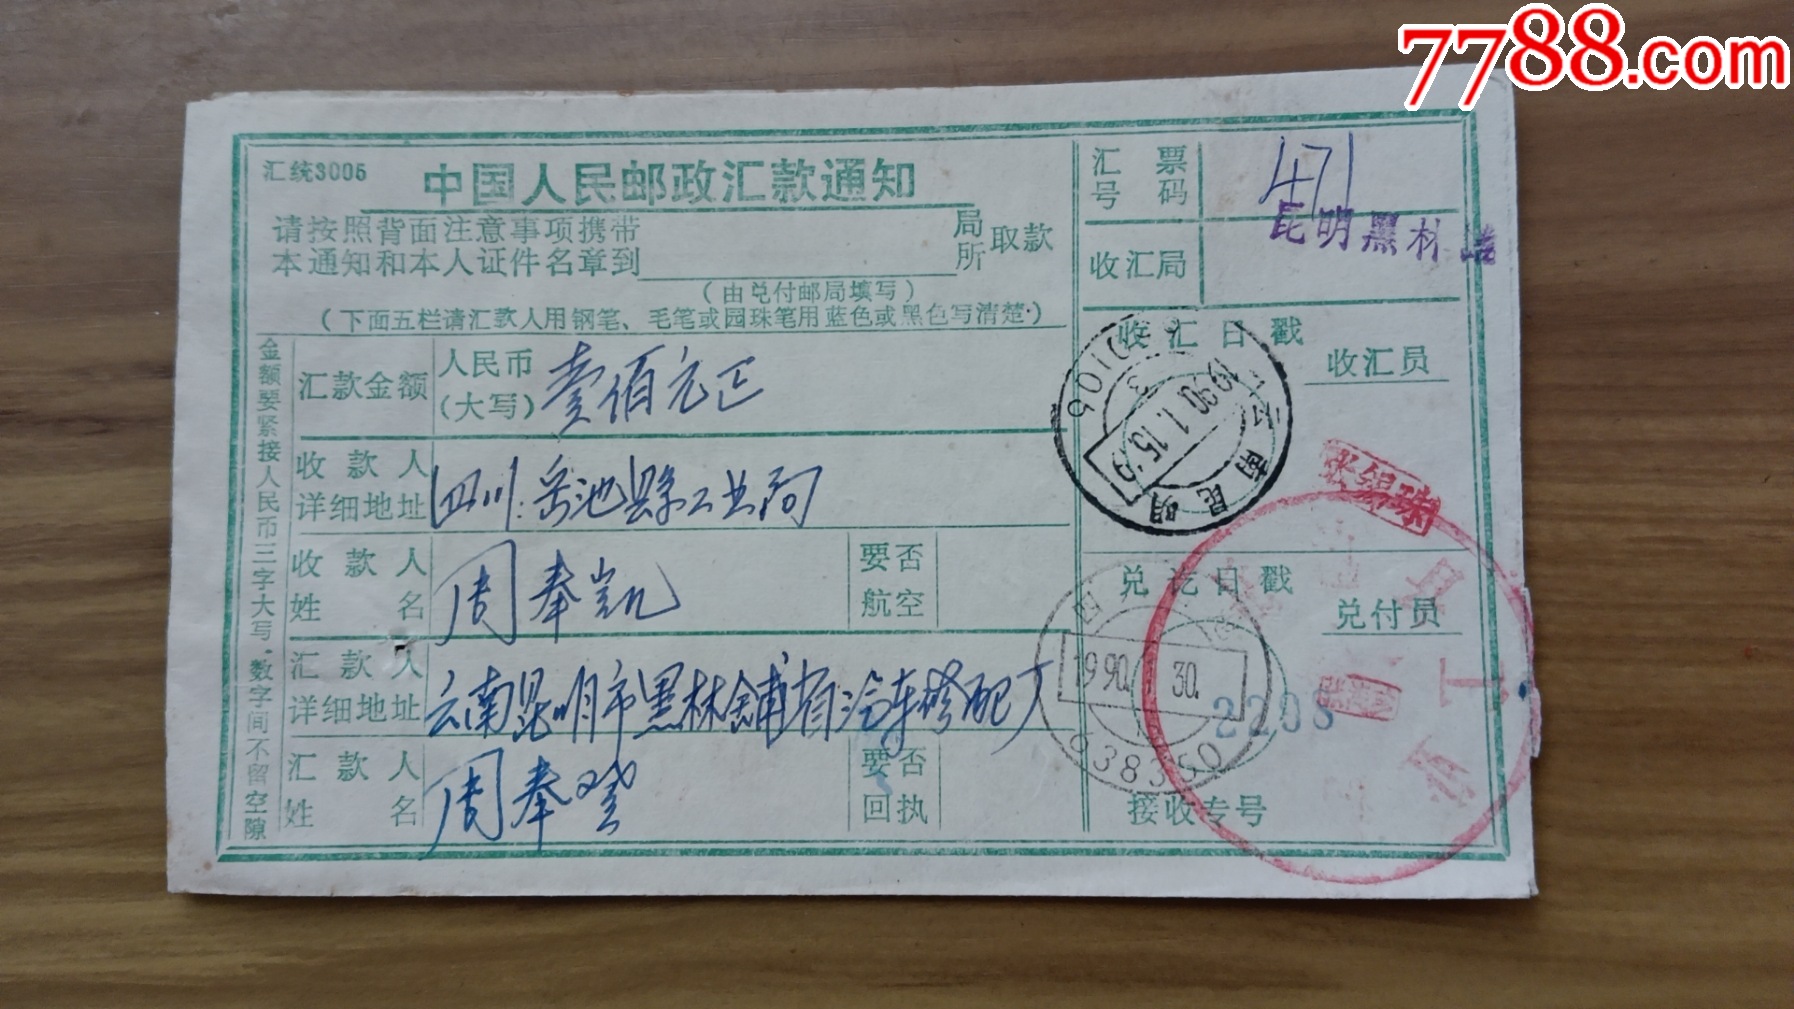 7788.com
汇统3005
中国人民邮政汇款通知
请按照背面注意事项携带
本通知和本人证件名章到
局
所
取款
(由兑付邮局填写)
(下面五栏请汇款人用钢笔、毛笔或园珠笔用蓝色或黑色写清楚·)
金额要紧接人民币三字大写·数字间不留空隙
汇款金额
人民币
(大写)
壹佰元正
收款人
详细地址
四川:岳池縣工业局
收款人
姓名
周奉凯
要否
航空
汇款人
详细地址
云南昆明市黑林铺省冶车修配厂
汇款人
姓名
周奉
要否
回执
汇票
号码
471
收汇局
昆明黑林
收汇日戳
收汇员
云南昆明
1990.1.15.9
张绵珠
兑讫日戳
兑付员
1990.1.30.
638350
2298
接收专号